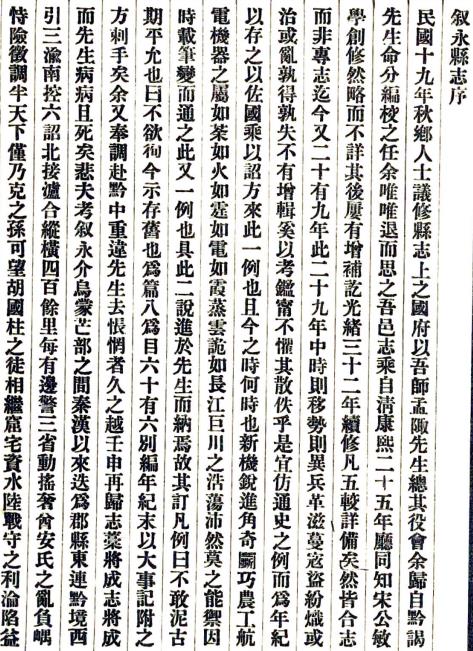 叙永縣志序
民國十九年秋鄉人士議修縣志上之國府以吾師孟陬先生總其役會余歸自黔謁
先生命分編校之任余唯唯退而思之吾邑志乘自淸康熙二十五年廳同知宋公敏
學創修然略而不詳其後屢有增補訖光緒三十二年續修凡五較詳備矣然皆合志
而非專志迄今又二十有九年此二十九年中時則移勢則異兵革滋蔓寇盜紛熾或
治或亂孰得孰失不有增輯奚以考鑑甯不懼其散佚乎是宜仿通史之例而爲年紀
以存之以佐國乘以詔方來此一例也且今之時何時也新機銳進角奇鬭巧農工航
電機器之屬如荼如火如霆如電如霞蒸雲詭如長江巨川之浩蕩沛然莫之能禦因
時載筆變而通之此又一例也具此二說進於先生而納焉故其訂凡例曰不敢泥古
期平允也曰不欲徇今示存舊也爲篇八爲目六十有六別編年紀末以大事記附之
方剞手矣余又奉調赴黔中重違先生去悵惘者久之越壬申再歸志藁將成志將成
而先生病病且死矣悲夫考叙永介烏蒙芒部之間秦漢以來迭爲郡縣東連黔境西
引三渝南控六詔北接瀘合縱橫四百餘里每有邊警三省動搖奢酋安氏之亂負嵎
恃險徵調半天下僅乃克之孫可望胡國柱之徒相繼窟宅資水陸戰守之利淪陷益